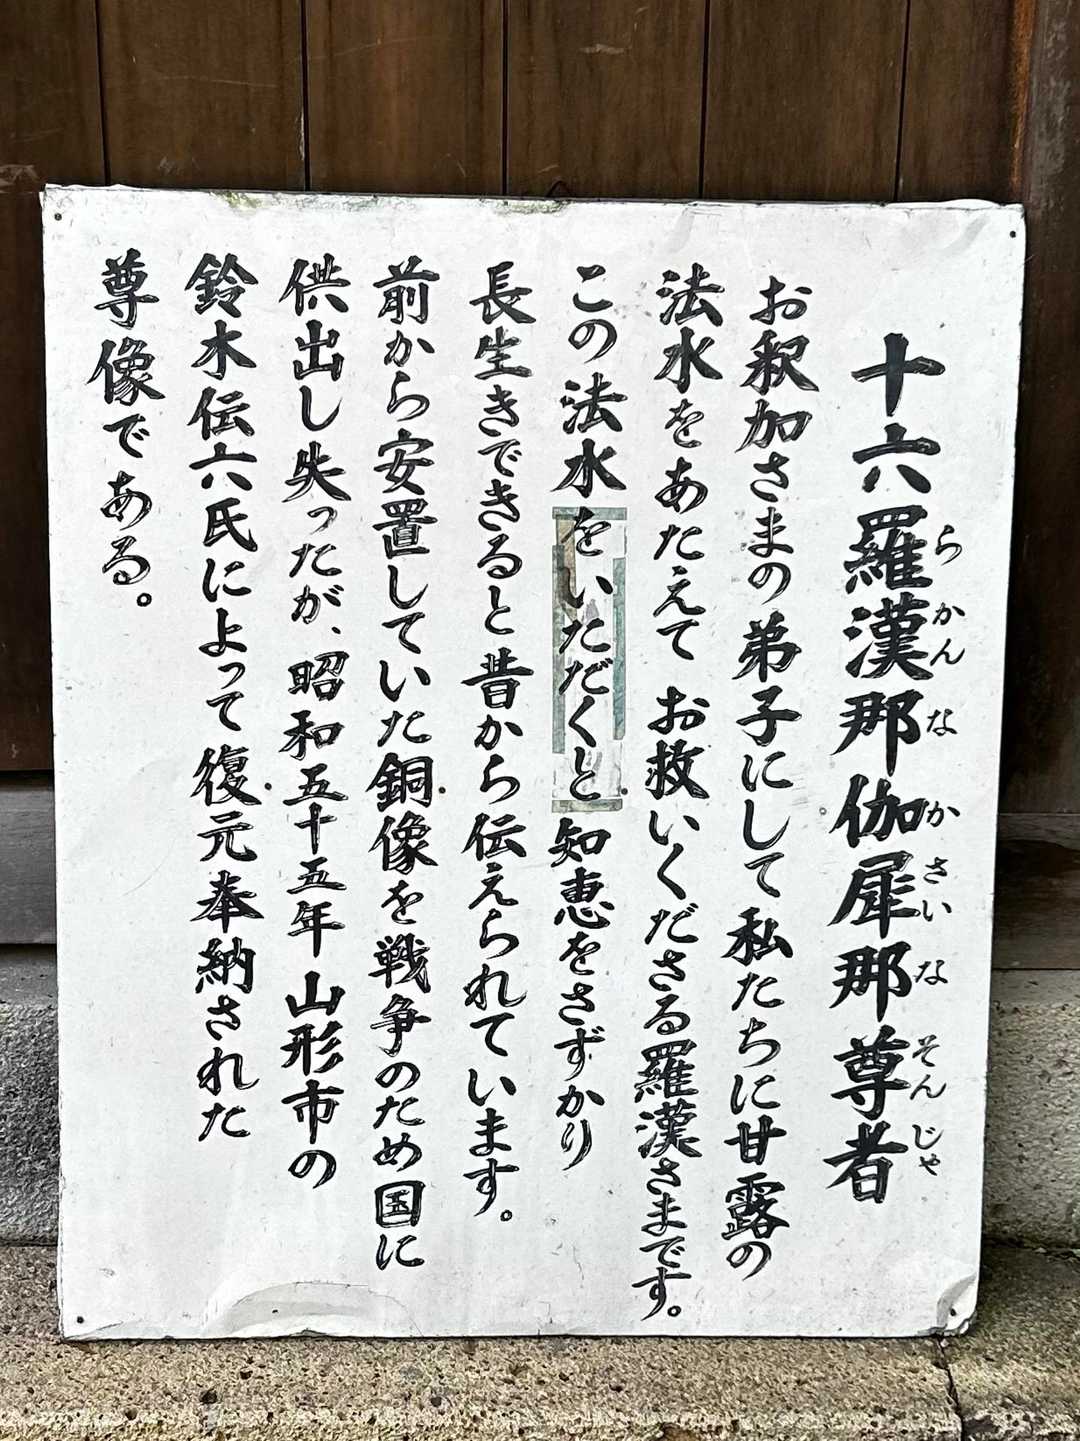 十六羅漢那伽犀那尊者
らかんなかさいなそんじゃ
お釈加さまの弟子にして私たちに甘露の
法水をあたえて お救いくださる羅漢さまです。
この法水をいただくと知恵をさずかり
長生きできると昔から伝えられています。
前から安置していた銅像を戦争のため国に
供出し失ったが、昭和五十五年 山形市の
鈴木伝六氏によって復元奉納された
尊像である。